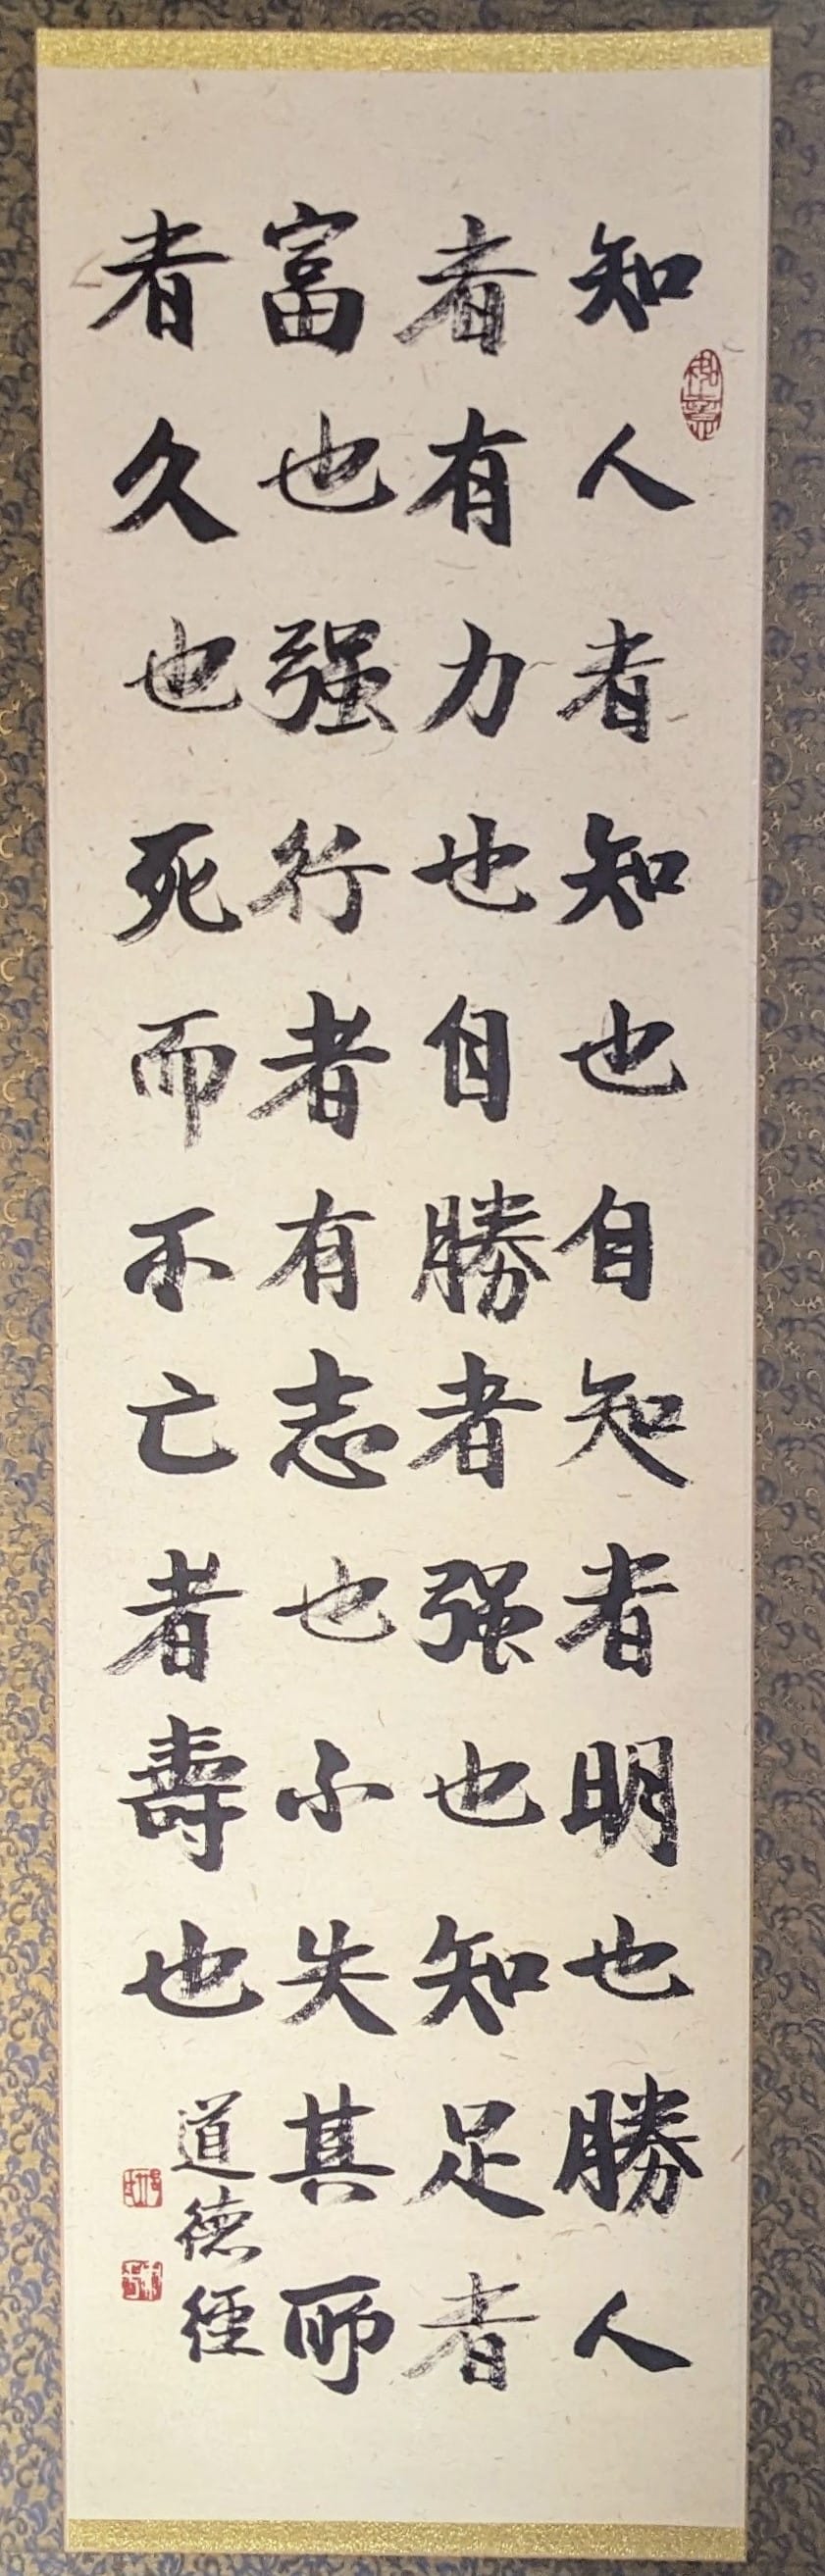 知人者知也自知者明也勝人
者有力也自勝者强也知足者
富也强行者有志也不失其所
者久也死而不亡者壽也
道德經